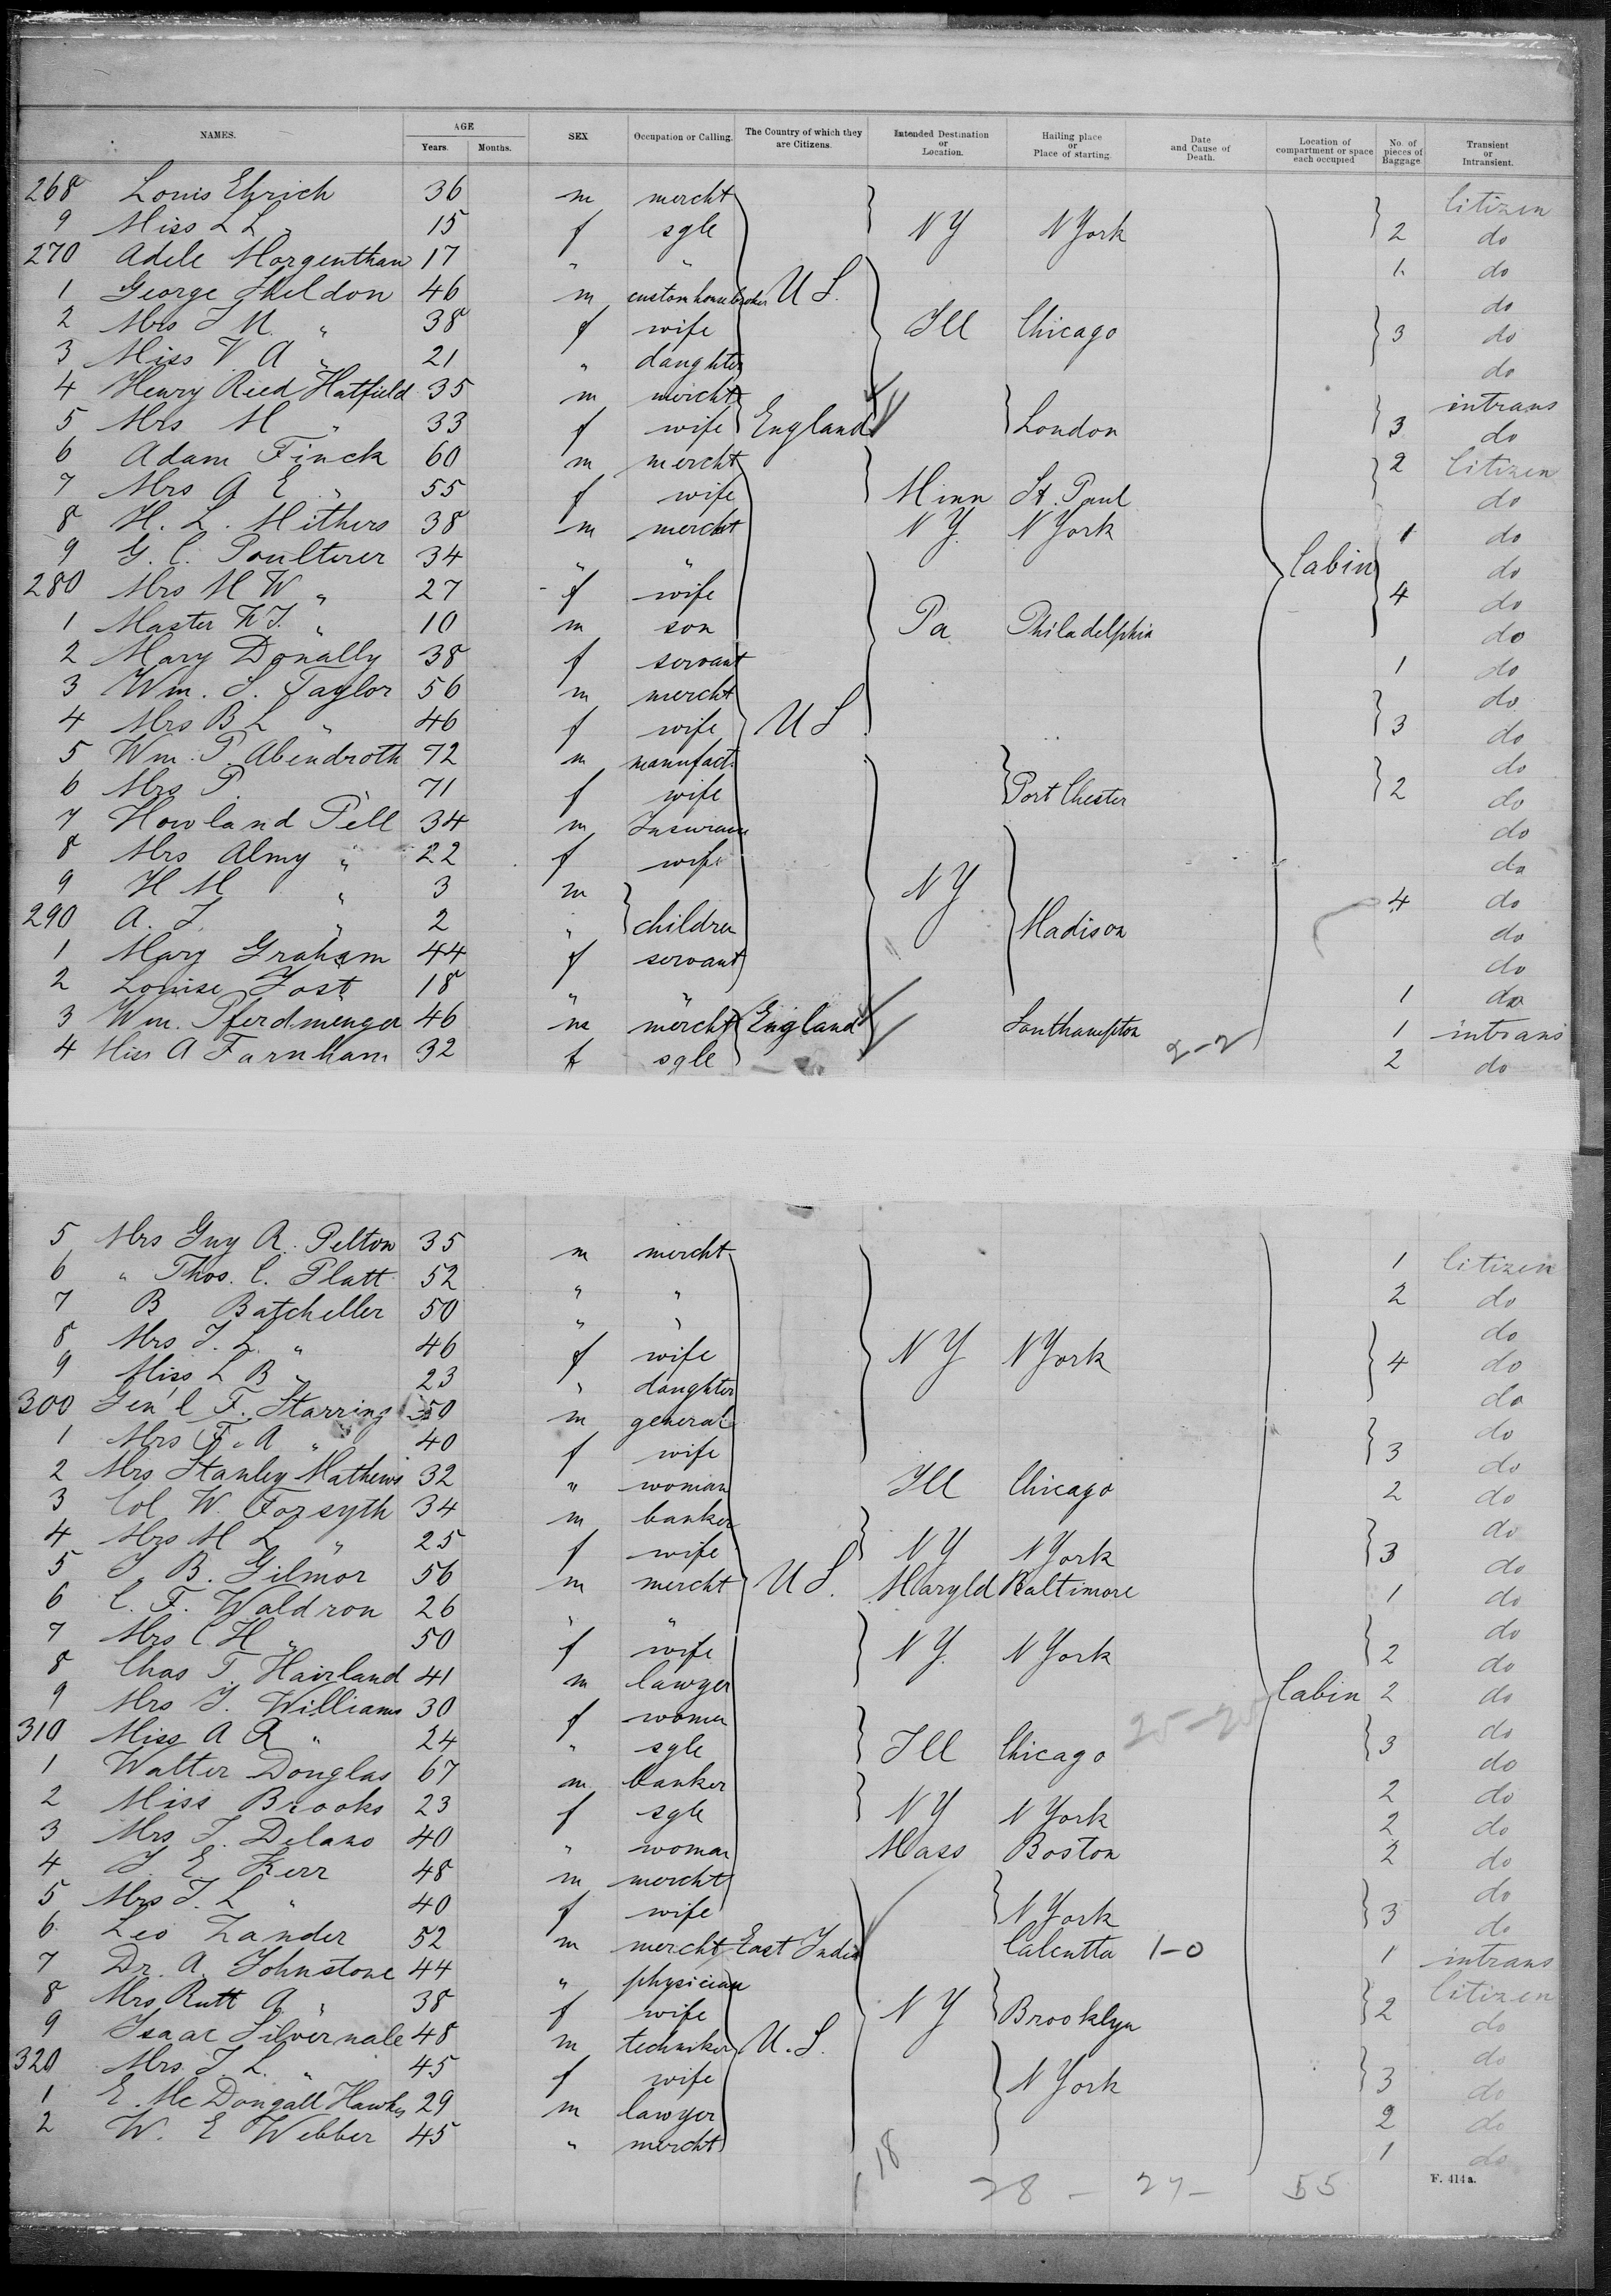 NAMES. AGE Years. Months. SEX Occupation or Calling. The Country of which they are Citizens. Intended Destination or Location. Hailing place or Place of starting. Date and Cause of Death. Location of compartment or space each occupied No. of pieces of Baggage. Transient or Intransient.
268 Louis Ehrich 36 m mercht Citizen
9 Miss L L " 15 f sgle NY N York 2 do
270 Adele Morgenthau 17 " " 1 do
1 George Sheldon 46 m customhousebroker U S. do
2 Mrs J M. " 38 f wife Ill Chicago 3 do
3 Miss V A " 21 " daughter do
4 Henry Reed Hatfield 35 m mercht intrans
5 Mrs M " 33 f wife England London 3 do
6 Adam Finck 60 m mercht 2 Citizen
7 Mrs A E " 55 f wife Minn St. Paul do
8 H. L. Mithers 38 m mercht NY. N York 1 do
9 G. C. Poulterer 34 " " Cabin do
280 Mrs M W " 27 f wife 4 do
1 Master " 10 m son Pa Philadelphia do
2 Mary Donally 38 f servant 1 do
3 Wm. S. Taylor 56 m mercht do
4 Mrs B L " 46 f wife U S 3 do
5 Wm. P. Abendroth 72 m manufact. do
6 Mrs P. " 71 f wife Port Chester 2 do
7 Howland Pell 34 m Insurance do
8 Mrs Almy " 22 f wife do
9 H M " 3 m NY 4 do
290 A. J. " 2 " children Madison do
1 Mary Graham 44 f servant do
2 Louise Jost 18 " " 1 do
3 Wm. Pferdmenger 46 m mercht England Southampton 1 intrans
4 Miss A Farnham 32 f sgle 2-2 2 do
5 Mrs Guy R. Pelton 35 m mercht 1 Citizen
6 " Thos. C. Platt 52 " " 2 do
7 B Batcheller 50 " " do
8 Mrs J. L. " 46 f wife NY N York 4 do
9 Miss L B " 23 " daughter do
300 Gen'l F. Starring 50 m general do
1 Mrs F. A " 40 f wife 3 do
2 Mrs Stanley Mathews 32 " woman Ill Chicago 2 do
3 Col W. Forsyth 34 m banker do
4 Mrs M L " 25 f wife NY N York 3 do
5 J. B. Gilmor 56 m mercht U S. Maryld Baltimore 1 do
6 C. F. Waldron 26 " " do
7 Mrs C H " 50 f wife NY. N York 2 do
8 Chas T Hairland 41 m lawyer Cabin 2 do
9 Mrs J. Williams 30 f woman 25-25 do
310 Miss A R " 24 " sgle Ill Chicago 3 do
1 Walter Douglas 67 m banker 2 do
2 Miss Brooks 23 f sgle NY N York 2 do
3 Mrs J. Delano 40 " woman Mass Boston 2 do
4 J E Kerr 48 m mercht do
5 Mrs J. L " 40 f wife N York 3 do
6 Leo Zander 52 m mercht East India Calcutta 1-0 1 intrans
7 Dr. A. Johnstone 44 " physician Citizen
8 Mrs Rutt A. " 38 f wife NY Brooklyn 2 do
9 Isaac Silvernale 48 m techniker U.S. do
320 Mrs J. L. " 45 f wife N York 3 do
1 E. Mc Dougall Hawkes 29 m lawyer 2 do
2 W. E Webber 45 " mercht 1 do
18
28 - 27 - 55
F. 414a.